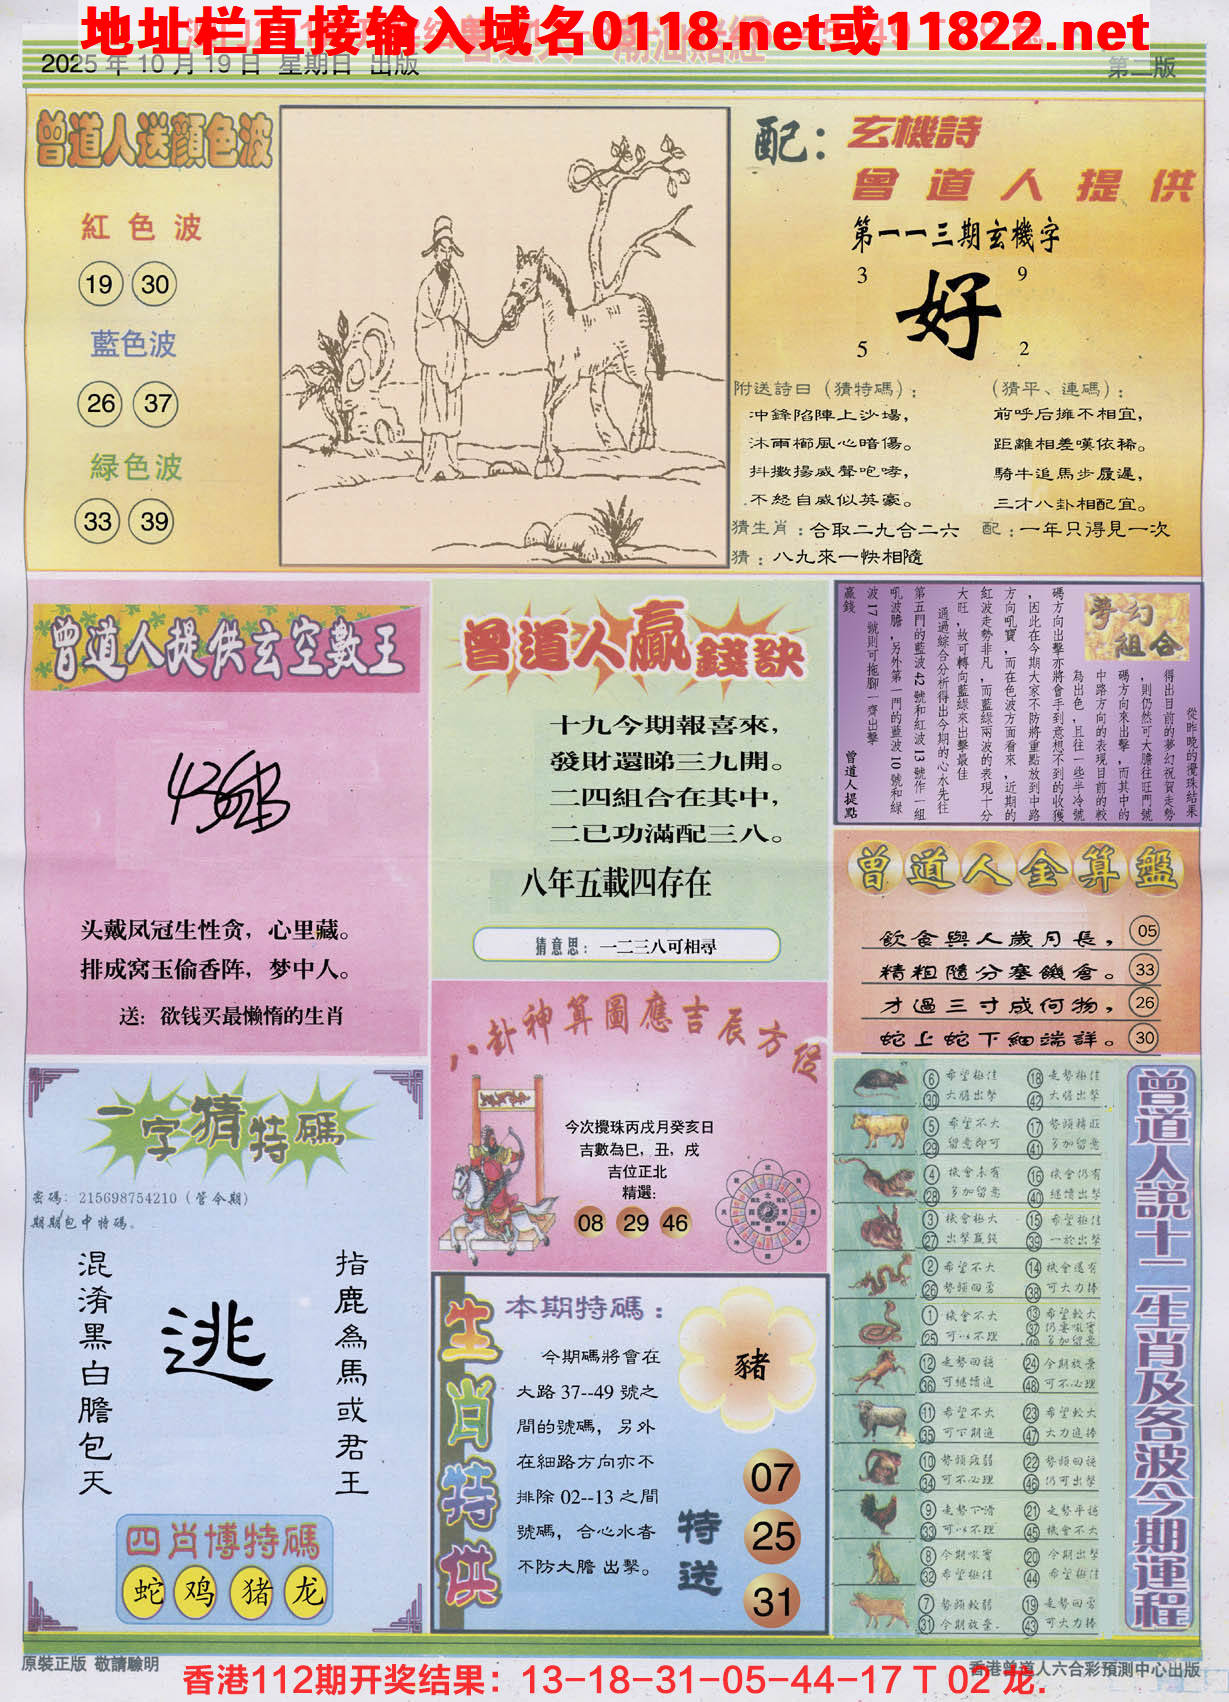 地址栏直接输入域名0118.net或11822.net
2025年10月19日 星期日 出版
第二版
曾道人送顏色波
紅色波
19 30
藍色波
26 37
緑色波
33 39
配：
玄機詩
曾道人提供
第一一三期玄機字
3 9
好
5 2
附送詩曰（猜特碼）：
冲鋒陷陣上沙場，
沐雨櫛風心暗傷。
抖擻揚威聲咆哮，
不怒自威似英豪。
猜生肖：合取二九合二六
猜：八九來一快相隨
（猜平、連碼）：
前呼后擁不相宜，
距離相差嘆依稀。
騎牛追馬步履遲，
三才八卦相配宜。
配：一年只得見一次
曾道人提供玄空數王
头戴凤冠生性贪，心里藏。
排成窝玉偷香阵，梦中人。
送：欲钱买最懒惰的生肖
曾道人贏錢訣
十九今期報喜來，
發財還睇三九開。
二四組合在其中，
二已功滿配三八。
八年五載四存在
猜意思：一二三八可相尋
夢幻組合
從昨晚的攪珠結果
得出目前的夢幻祝賀走勢
，則仍然可大膽往旺門號
碼方向來出擊，而其中的
中路方向的表現目前的較
為出色，且往一些半冷號
碼方向出擊亦將會手到意想不到的收獲
，因此在今期大家不防將重點放到中路
方向吼寶，而在色波方面看來，近期的
紅波走勢非凡，而藍綠兩波的表現十分
大旺，故可轉向藍綠來出擊最佳
通過綜合分析得出今期的心水先往
第五門的藍波42號和紅波13號作一組
吼波膽，另外第一門的藍波10號和綠
波17號則可拖腳一齊出擊
贏錢
曾道人提點
曾道人金算盤
飲食與人歲月長， 05
精粗隨分塞饑倉。 33
才過三寸成何物， 26
蛇上蛇下細端詳。 30
八卦神算圖應吉辰方位
今次攪珠丙戌月癸亥日
吉數為巳，丑，戌
吉位正北
精選：
08 29 46
一字猜特碼
密碼：215698754210（管今期）
期期包中特碼。
混淆黑白膽包天
逃
指鹿為馬或君王
四肖博特碼
蛇 鸡 猪 龙
生肖特供
本期特碼：
今期碼將會在
大路37--49號之
間的號碼，另外
在細路方向亦不
排除02--13之間
號碼，合心水者
不防大膽出擊。
豬
特送
07
25
31
曾道人説十二生肖及各波今期運程
6 希望極佳 18 走勢極佳
30 大膽出擊 42 大膽出擊
5 希望不大 17 勢頭精旺
29 留意即可 41 多加留意
4 機會未有 16 機會仍有
28 多加留意 40 繼續出擊
3 機會極大 15 希望極佳
27 出擊贏錢 39 一於出擊
2 希望不大 14 機會還有
26 勢頭回勇 38 可大力捧
1 機會不大 13 希望較大
25 可以不理 37 仍要吼實
49 多加留意
12 走勢回穩 24 今期放棄
36 可繼續追 48 可不必理
11 希望不大 23 希望較大
35 可下期追 47 大力追捧
10 勢頭疲弱 22 勢頭回穩
34 可不必理 46 仍可出擊
9 走勢下滑 21 走勢平穩
33 可以不理 45 機會不大
8 今期吼實 20 今期出擊
32 希望極佳 44 希望極佳
7 勢頭較弱 19 走勢回勇
31 今期放棄. 43 可大力捧
原裝正版 敬請驗明
香港曾道人六合彩預測中心出版
香港112期开奖结果：13-18-31-05-44-17 T 02 龙.